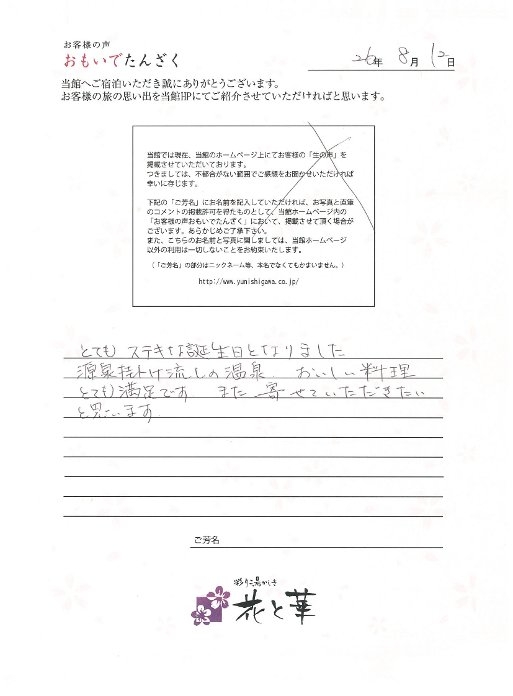 お客様の声
おもいでたんざく
26年 8月 12日
当館へご宿泊いただき誠にありがとうございます。
お客様の旅の思い出を当館HPにてご紹介させていただければと思います。
当館では現在、当館のホームページ上にてお客様の「生の声」を
掲載させていただいております。
つきましては、不都合がない範囲でご感想をお聞かせいただければ
幸いに存じます。
下記の「ご芳名」にお名前を記入していただければ、お写真と直筆
のコメントの掲載許可を得たものとして、当館ホームページ内の
「お客様の声おもいでたんざく」において、掲載させて頂く場合が
ございます。あらかじめご了承下さい。
また、こちらのお名前と写真に関しましては、当館ホームページ
以外の利用は一切しないことをお約束いたします。
(「ご芳名」の部分はニックネーム等、本名でなくてもかまいません。)
http://www.yunishigawa.co.jp/
とても ステキな誕生日となりました
源泉掛け流しの温泉 おいしい料理
とても満足です また 寄せていただきたい
と思います.
ご芳名
彩り湯かしき
花と華